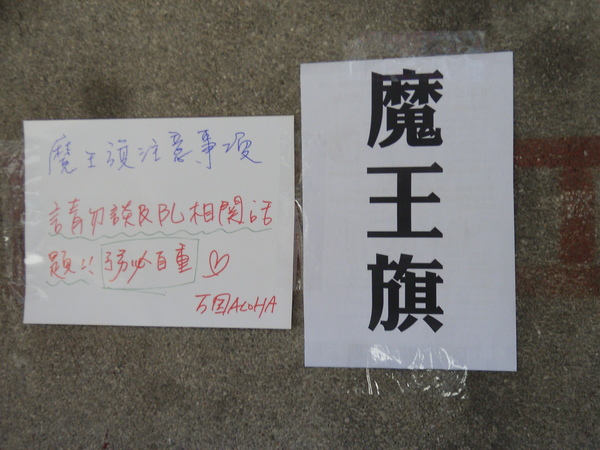 魔王旗注意事項
請勿談及BL相關話
題!! 務必自重♡
万国ALOHA
魔王旗